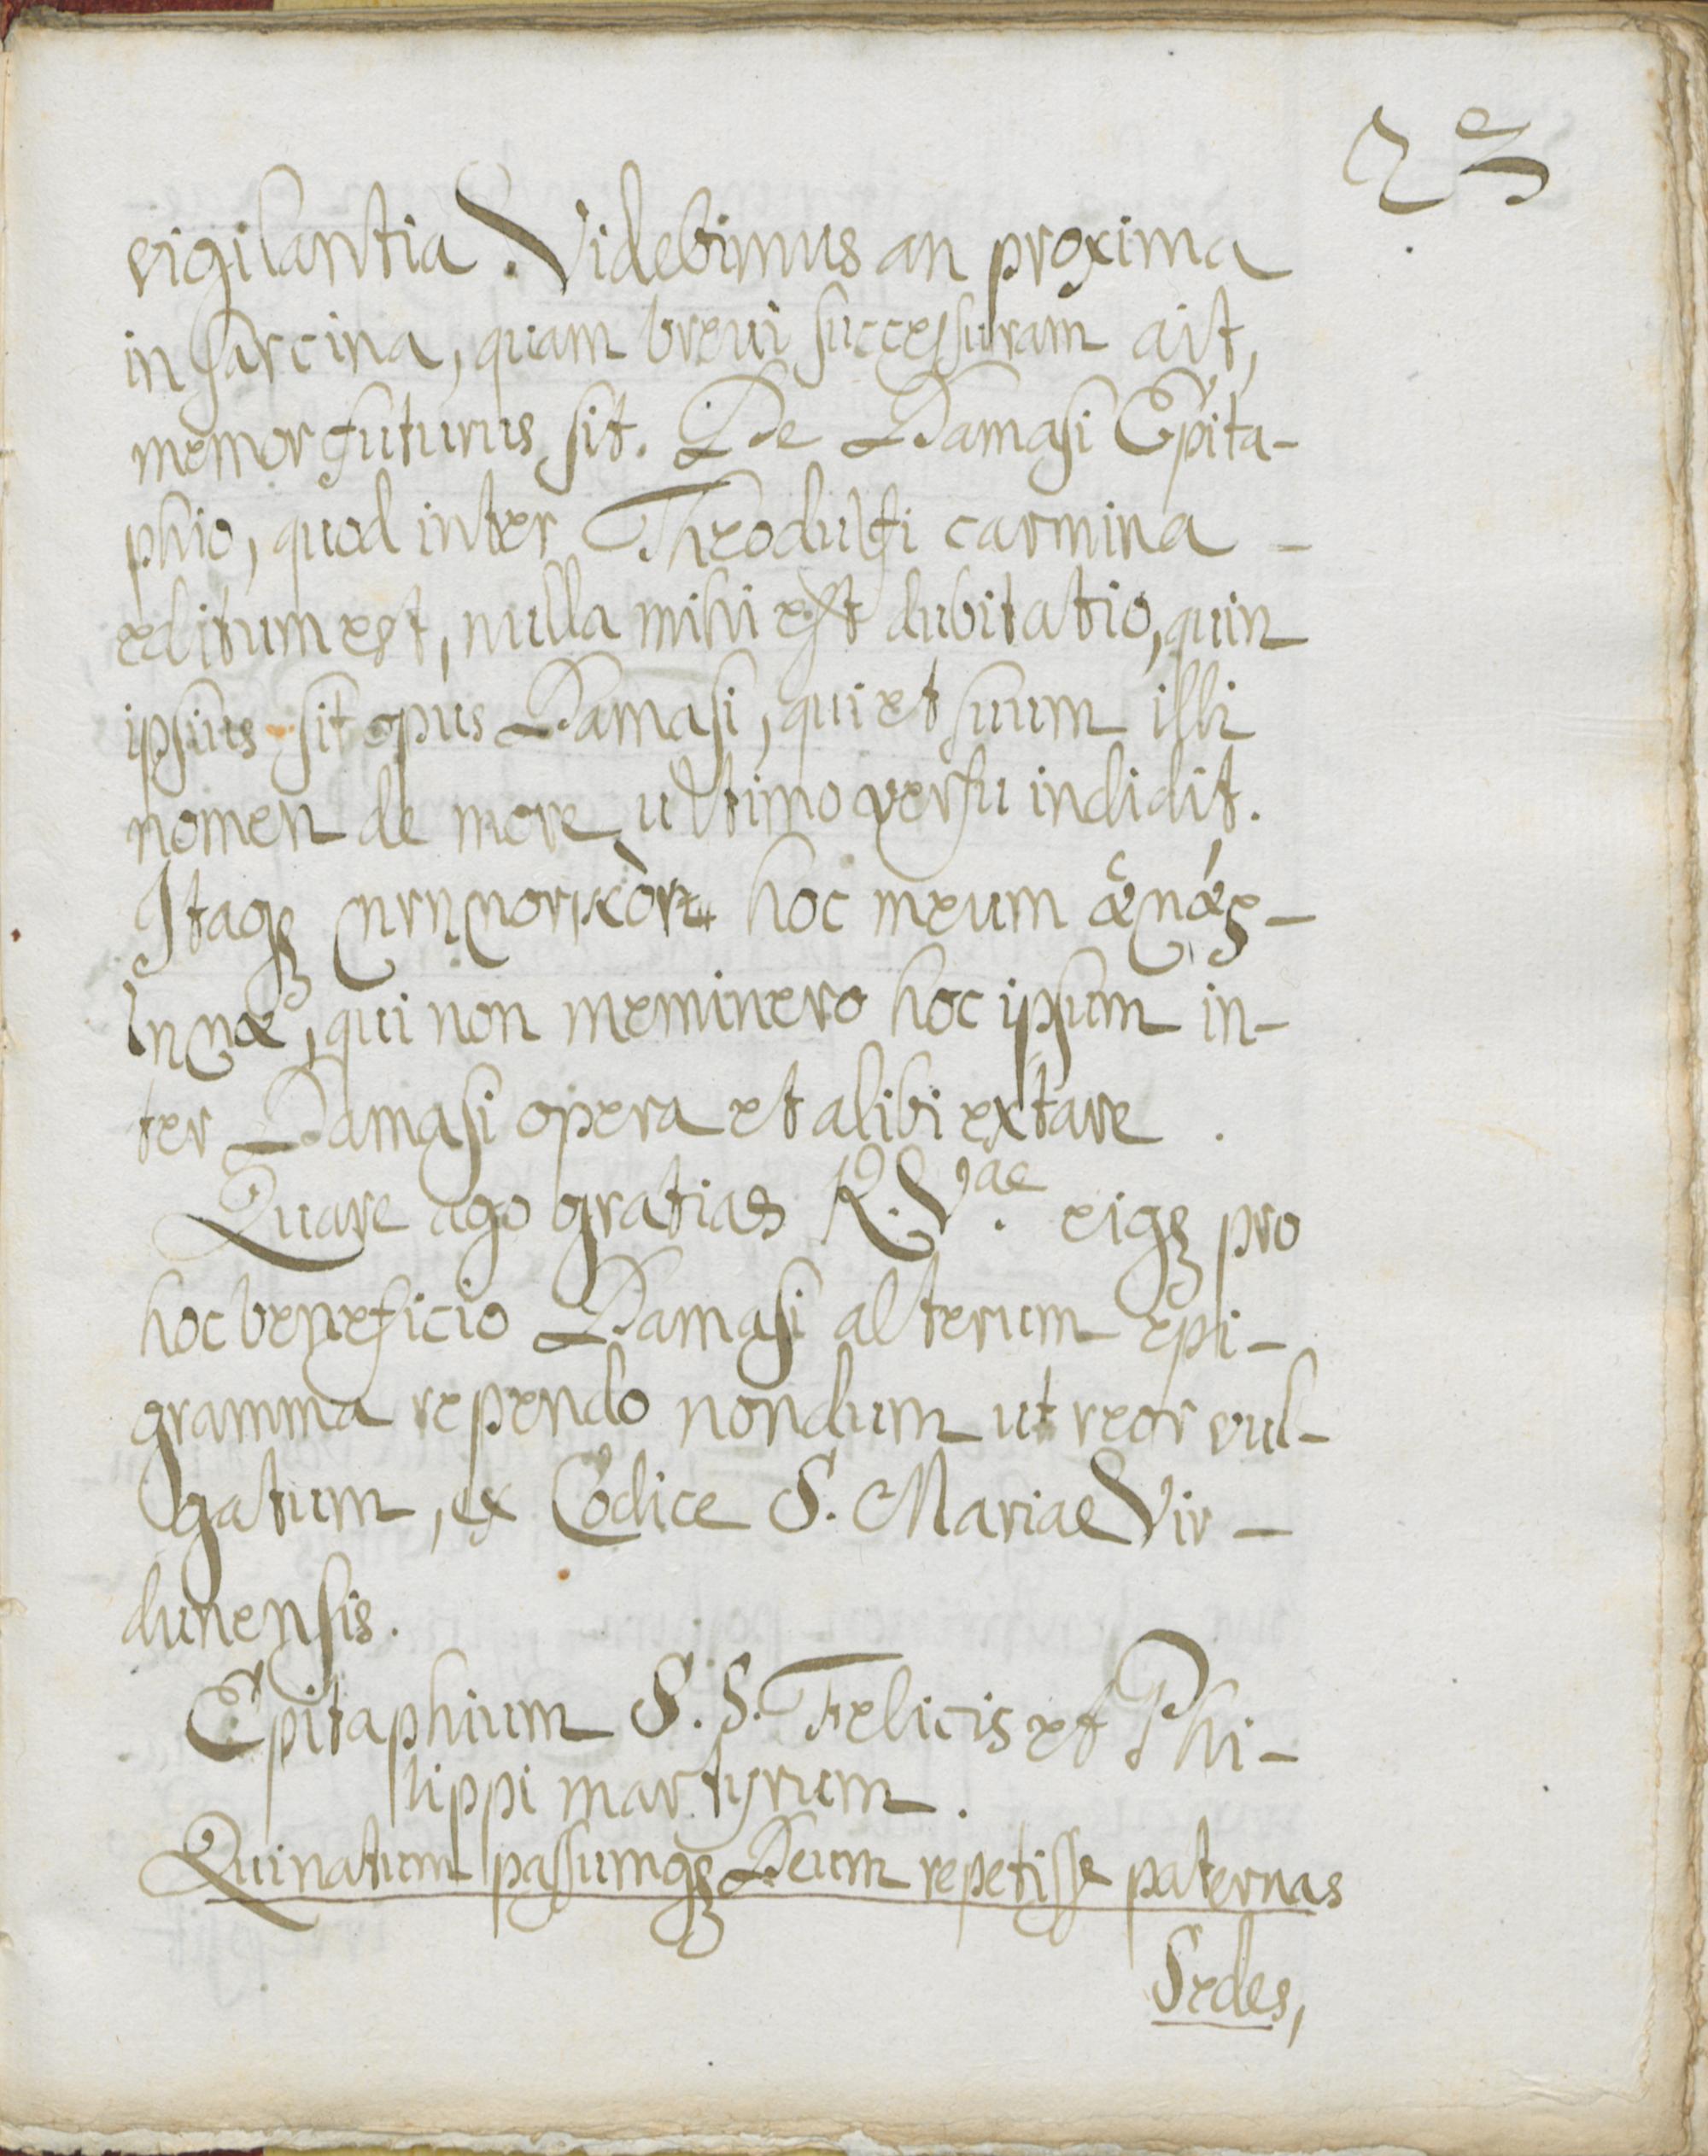 25
vigilantia. Videbimus an proxima
in sarcina, quam breui successuram ait,
memor futurus sit. De Damasi Epita-
phio, quod inter Theodulfi carmina -
editum est, nulla mihi est dubitatio, quin
ipsius sit opus Damasi, qui et suum illi
nomen de more ultimo versu indidit.
Itaqꝫ hoc meum
qui non meminero hoc ipsum in-
ter Damasi opera et alibi extare.
Quare ago gratias R. V.ae eiqꝫ pro
hoc beneficio Damasi alterum epi-
gramma rependo nondum ut reor vul-
gatum, ex Codice S. Mariae Vir-
dunensis.
Epitaphium S. S. Felicis et Phi-
lippi martyrum.
Qui natum passumqꝫ Deum repetisse paternas
Sedes,